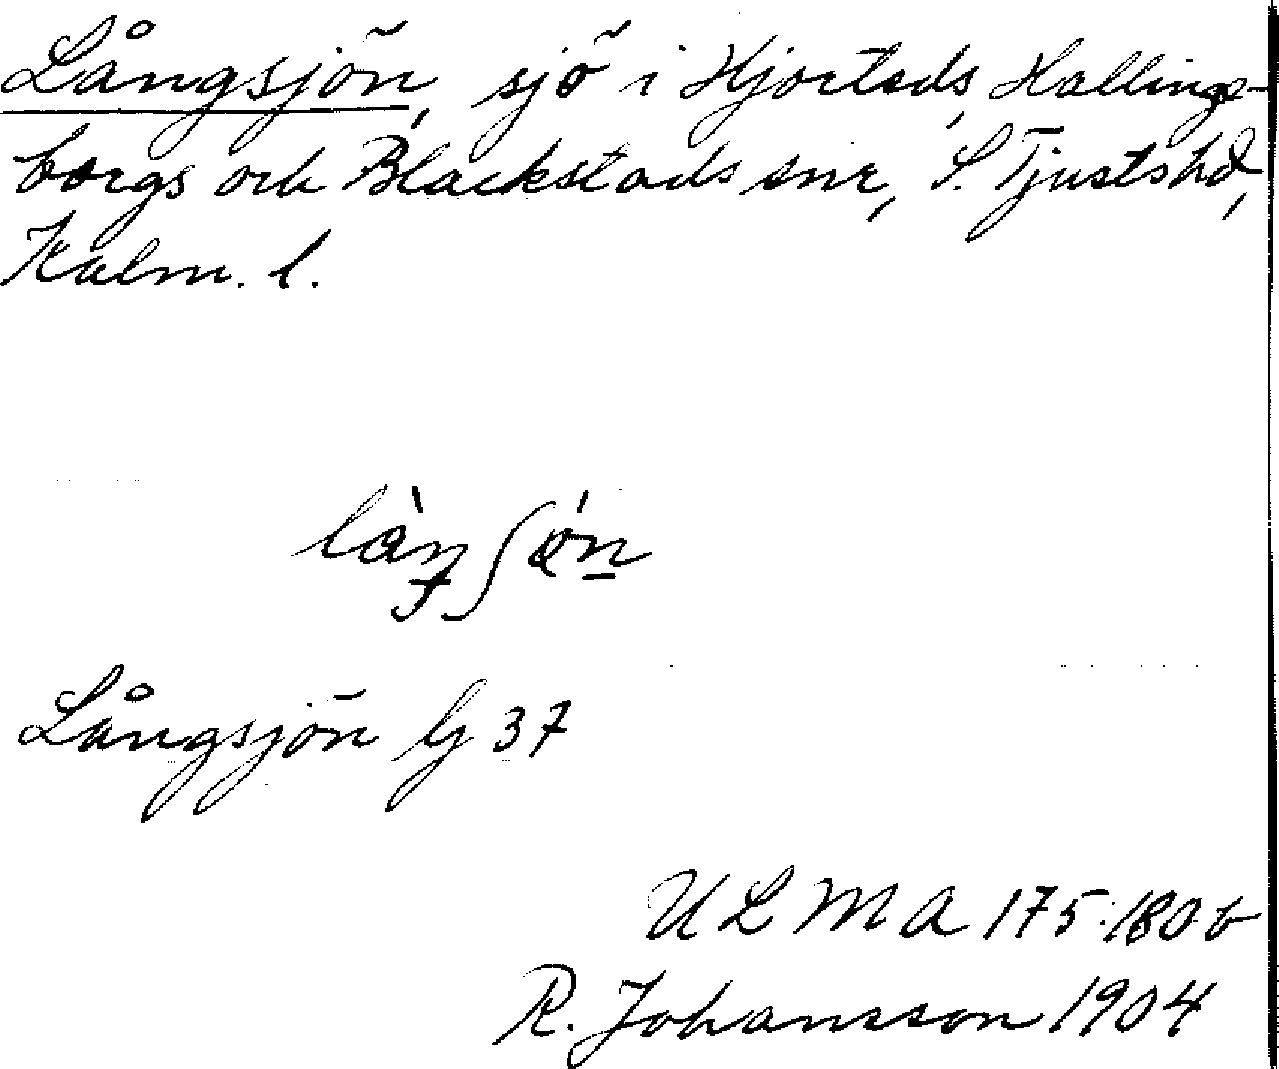 Långsjön, sjö i Hjorteds, Hallings-
borgs och Blackstads snr, S. Tjusts hd,
Kalm. l.
Långsjön G 37
ULMA 175:180 b
R. Johansson 1904